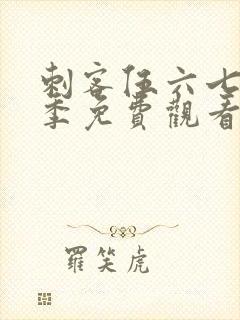 刺客伍六七
季免費觀看
羅笑虎